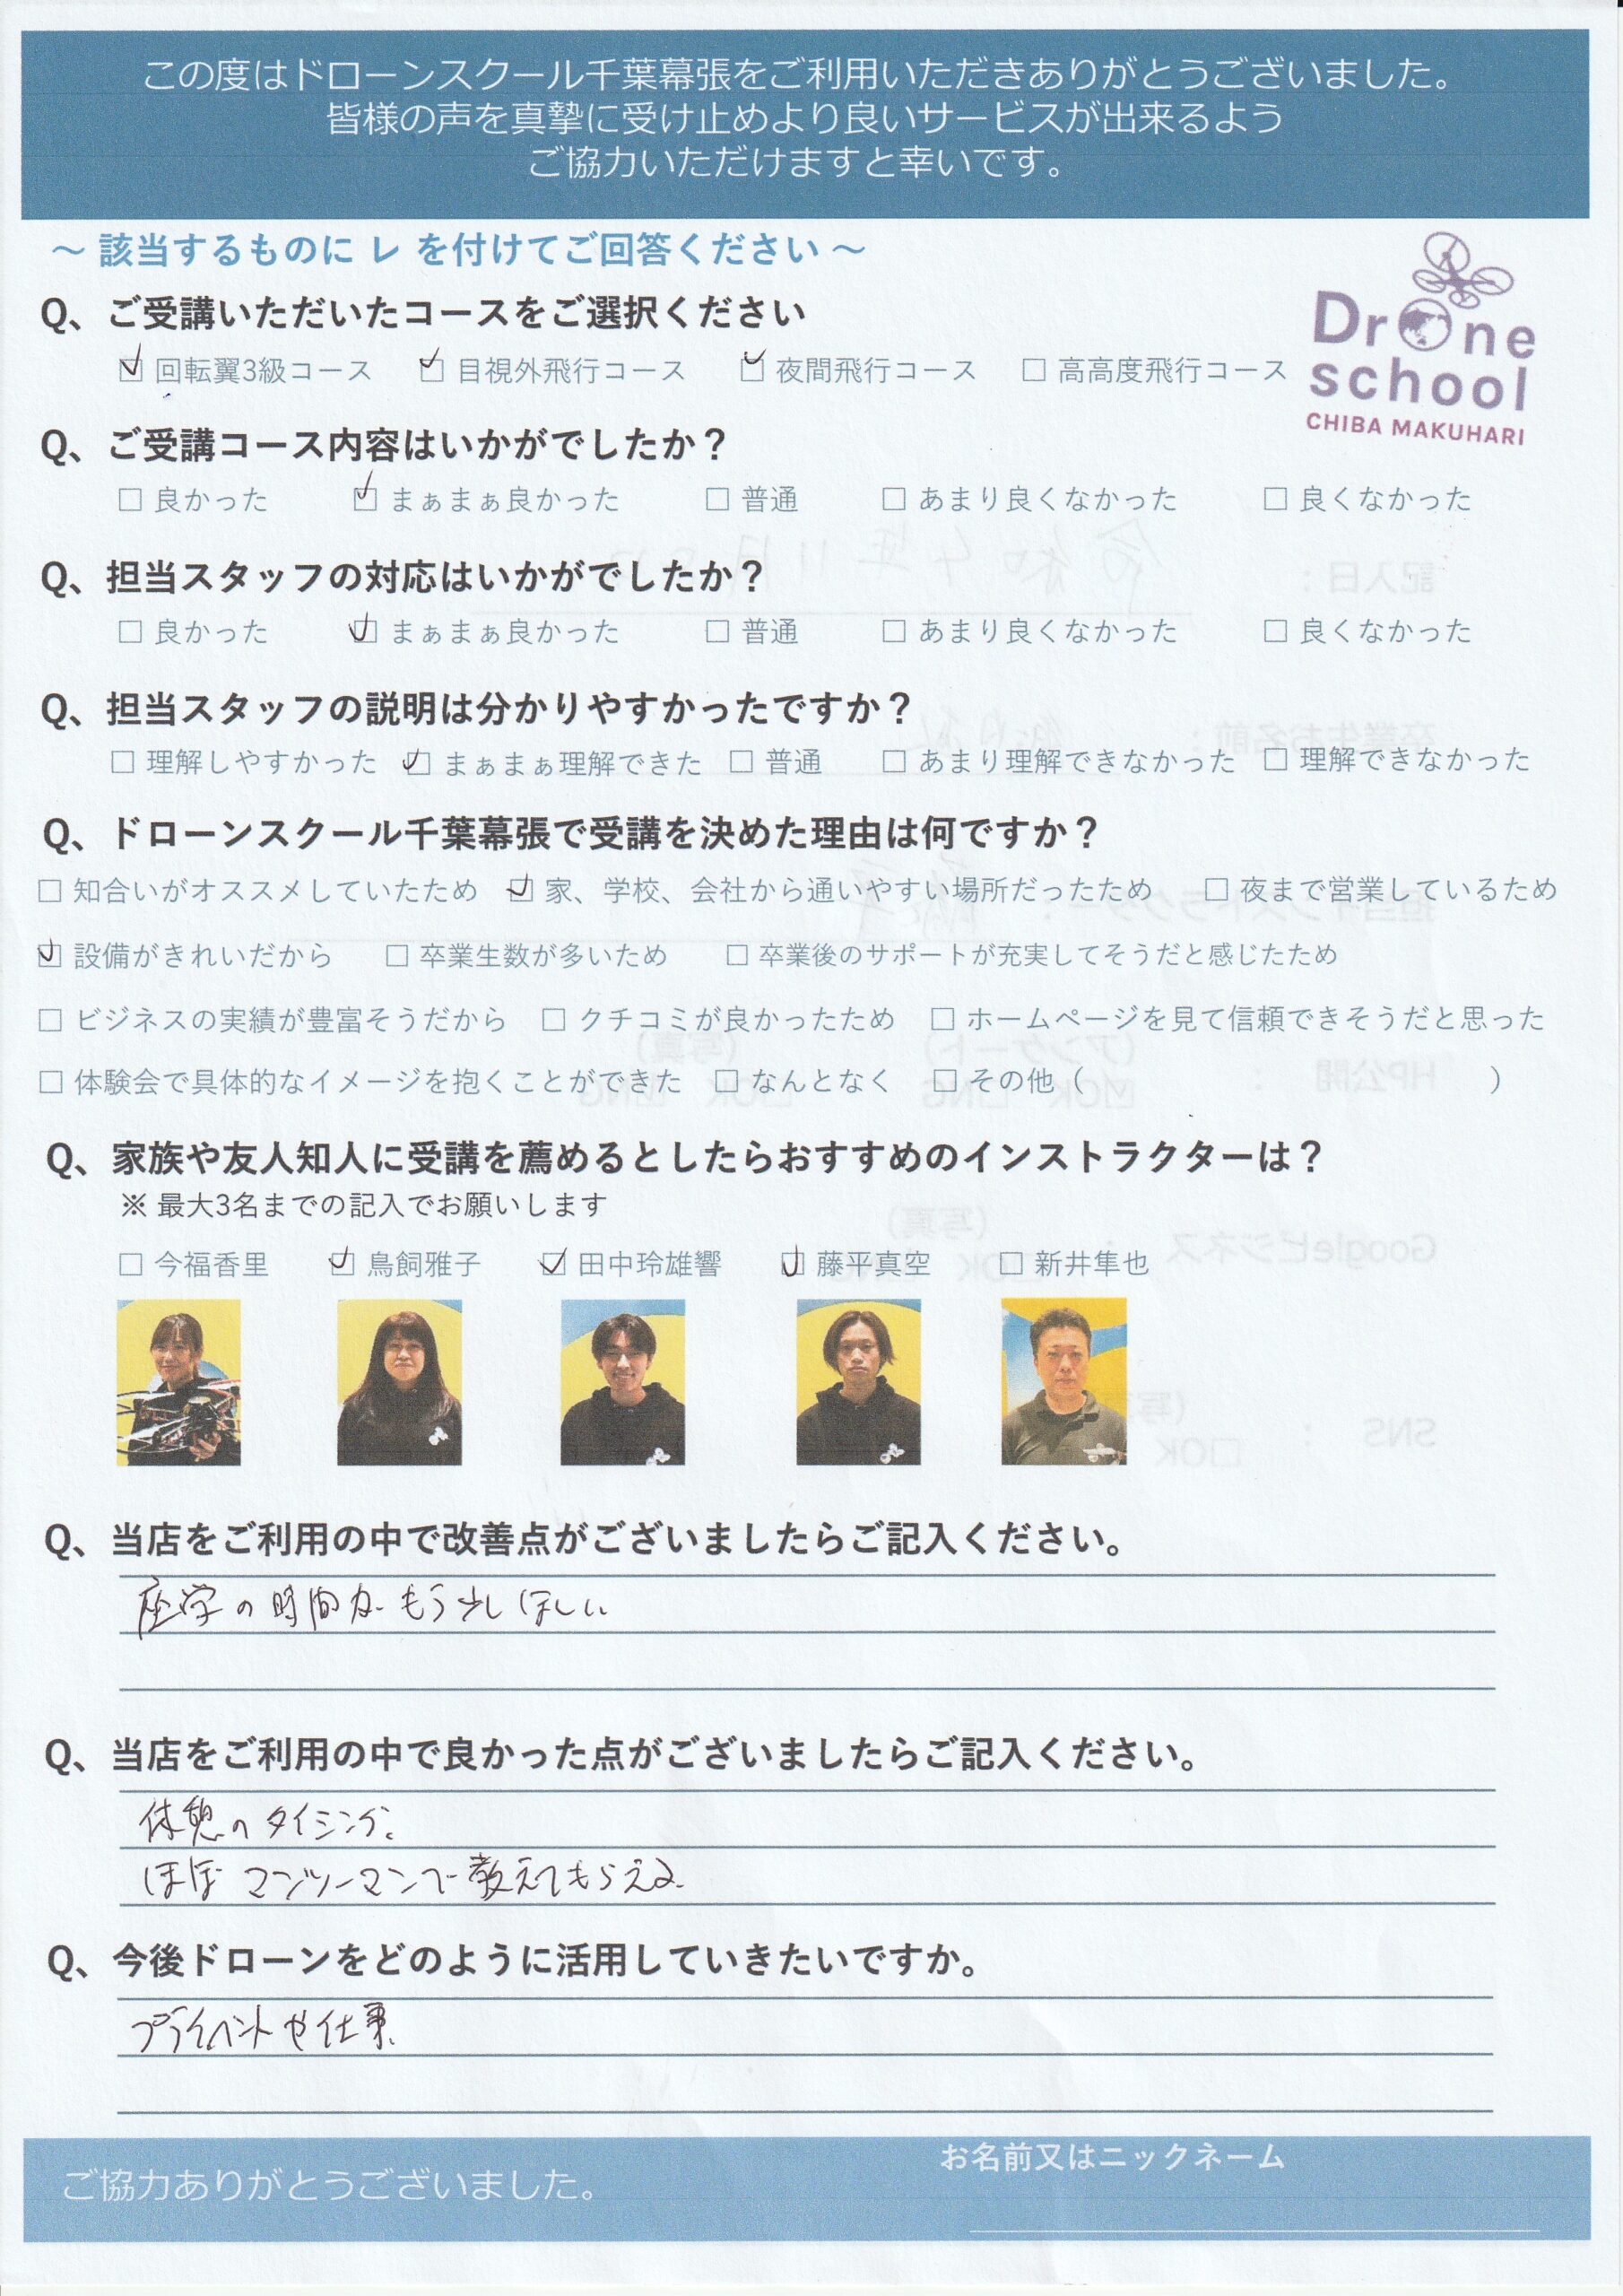 この度はドローンスクール千葉幕張をご利用いただきありがとうございました。
皆様の声を真摯に受け止めより良いサービスが出来るよう
ご協力いただけますと幸いです。
～ 該当するものに レ を付けてご回答ください ～
Drone
school
CHIBA MAKUHARI
Q、ご受講いただいたコースをご選択ください
☑ 回転翼3級コース ☑ 目視外飛行コース ☑ 夜間飛行コース □ 高高度飛行コース
Q、ご受講コース内容はいかがでしたか？
□ 良かった ☑ まぁまぁ良かった □ 普通 □ あまり良くなかった □ 良くなかった
Q、担当スタッフの対応はいかがでしたか？
□ 良かった ☑ まぁまぁ良かった □ 普通 □ あまり良くなかった □ 良くなかった
Q、担当スタッフの説明は分かりやすかったですか？
□ 理解しやすかった ☑ まぁまぁ理解できた □ 普通 □ あまり理解できなかった □ 理解できなかった
Q、ドローンスクール千葉幕張で受講を決めた理由は何ですか？
□ 知合いがオススメしていたため ☑ 家、学校、会社から通いやすい場所だったため □ 夜まで営業しているため
☑ 設備がきれいだから □ 卒業生数が多いため □ 卒業後のサポートが充実してそうだと感じたため
□ ビジネスの実績が豊富そうだから □ クチコミが良かったため □ ホームページを見て信頼できそうだと思った
□ 体験会で具体的なイメージを抱くことができた □ なんとなく □ その他（ ）
Q、家族や友人知人に受講を薦めるとしたらおすすめのインストラクターは？
※ 最大3名までの記入でお願いします
□ 今福香里 ☑ 鳥飼雅子 ☑ 田中玲雄響 ☑ 藤平真空 □ 新井隼也
Q、当店をご利用の中で改善点がございましたらご記入ください。
座学の時間がもう少しほしい
Q、当店をご利用の中で良かった点がございましたらご記入ください。
休憩のタイミング。
ほぼマンツーマンで教えてもらえる
Q、今後ドローンをどのように活用していきたいですか。
プライベントや仕事
ご協力ありがとうございました。
お名前又はニックネーム